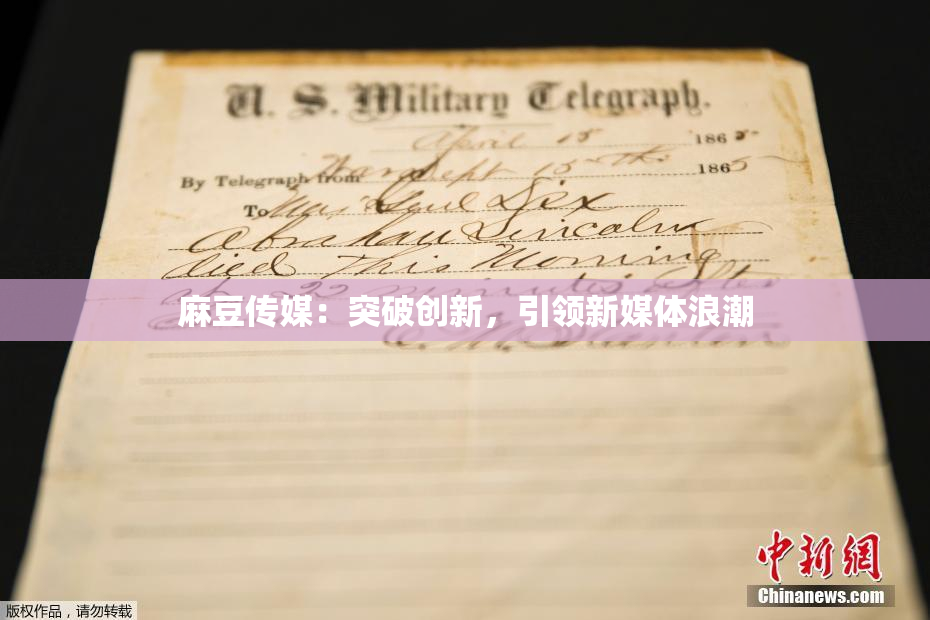 U. S. Military Telegraph.
April 15 1865
By Telegraph from War Dept 15th 1865
To Maj Genl Dix
Abraham Lincoln
died This Morning
at 22 minutes after
麻豆传媒：突破创新，引领新媒体浪潮
E. M. Stanton
中新网
Chinanews.com
版权作品，请勿转载